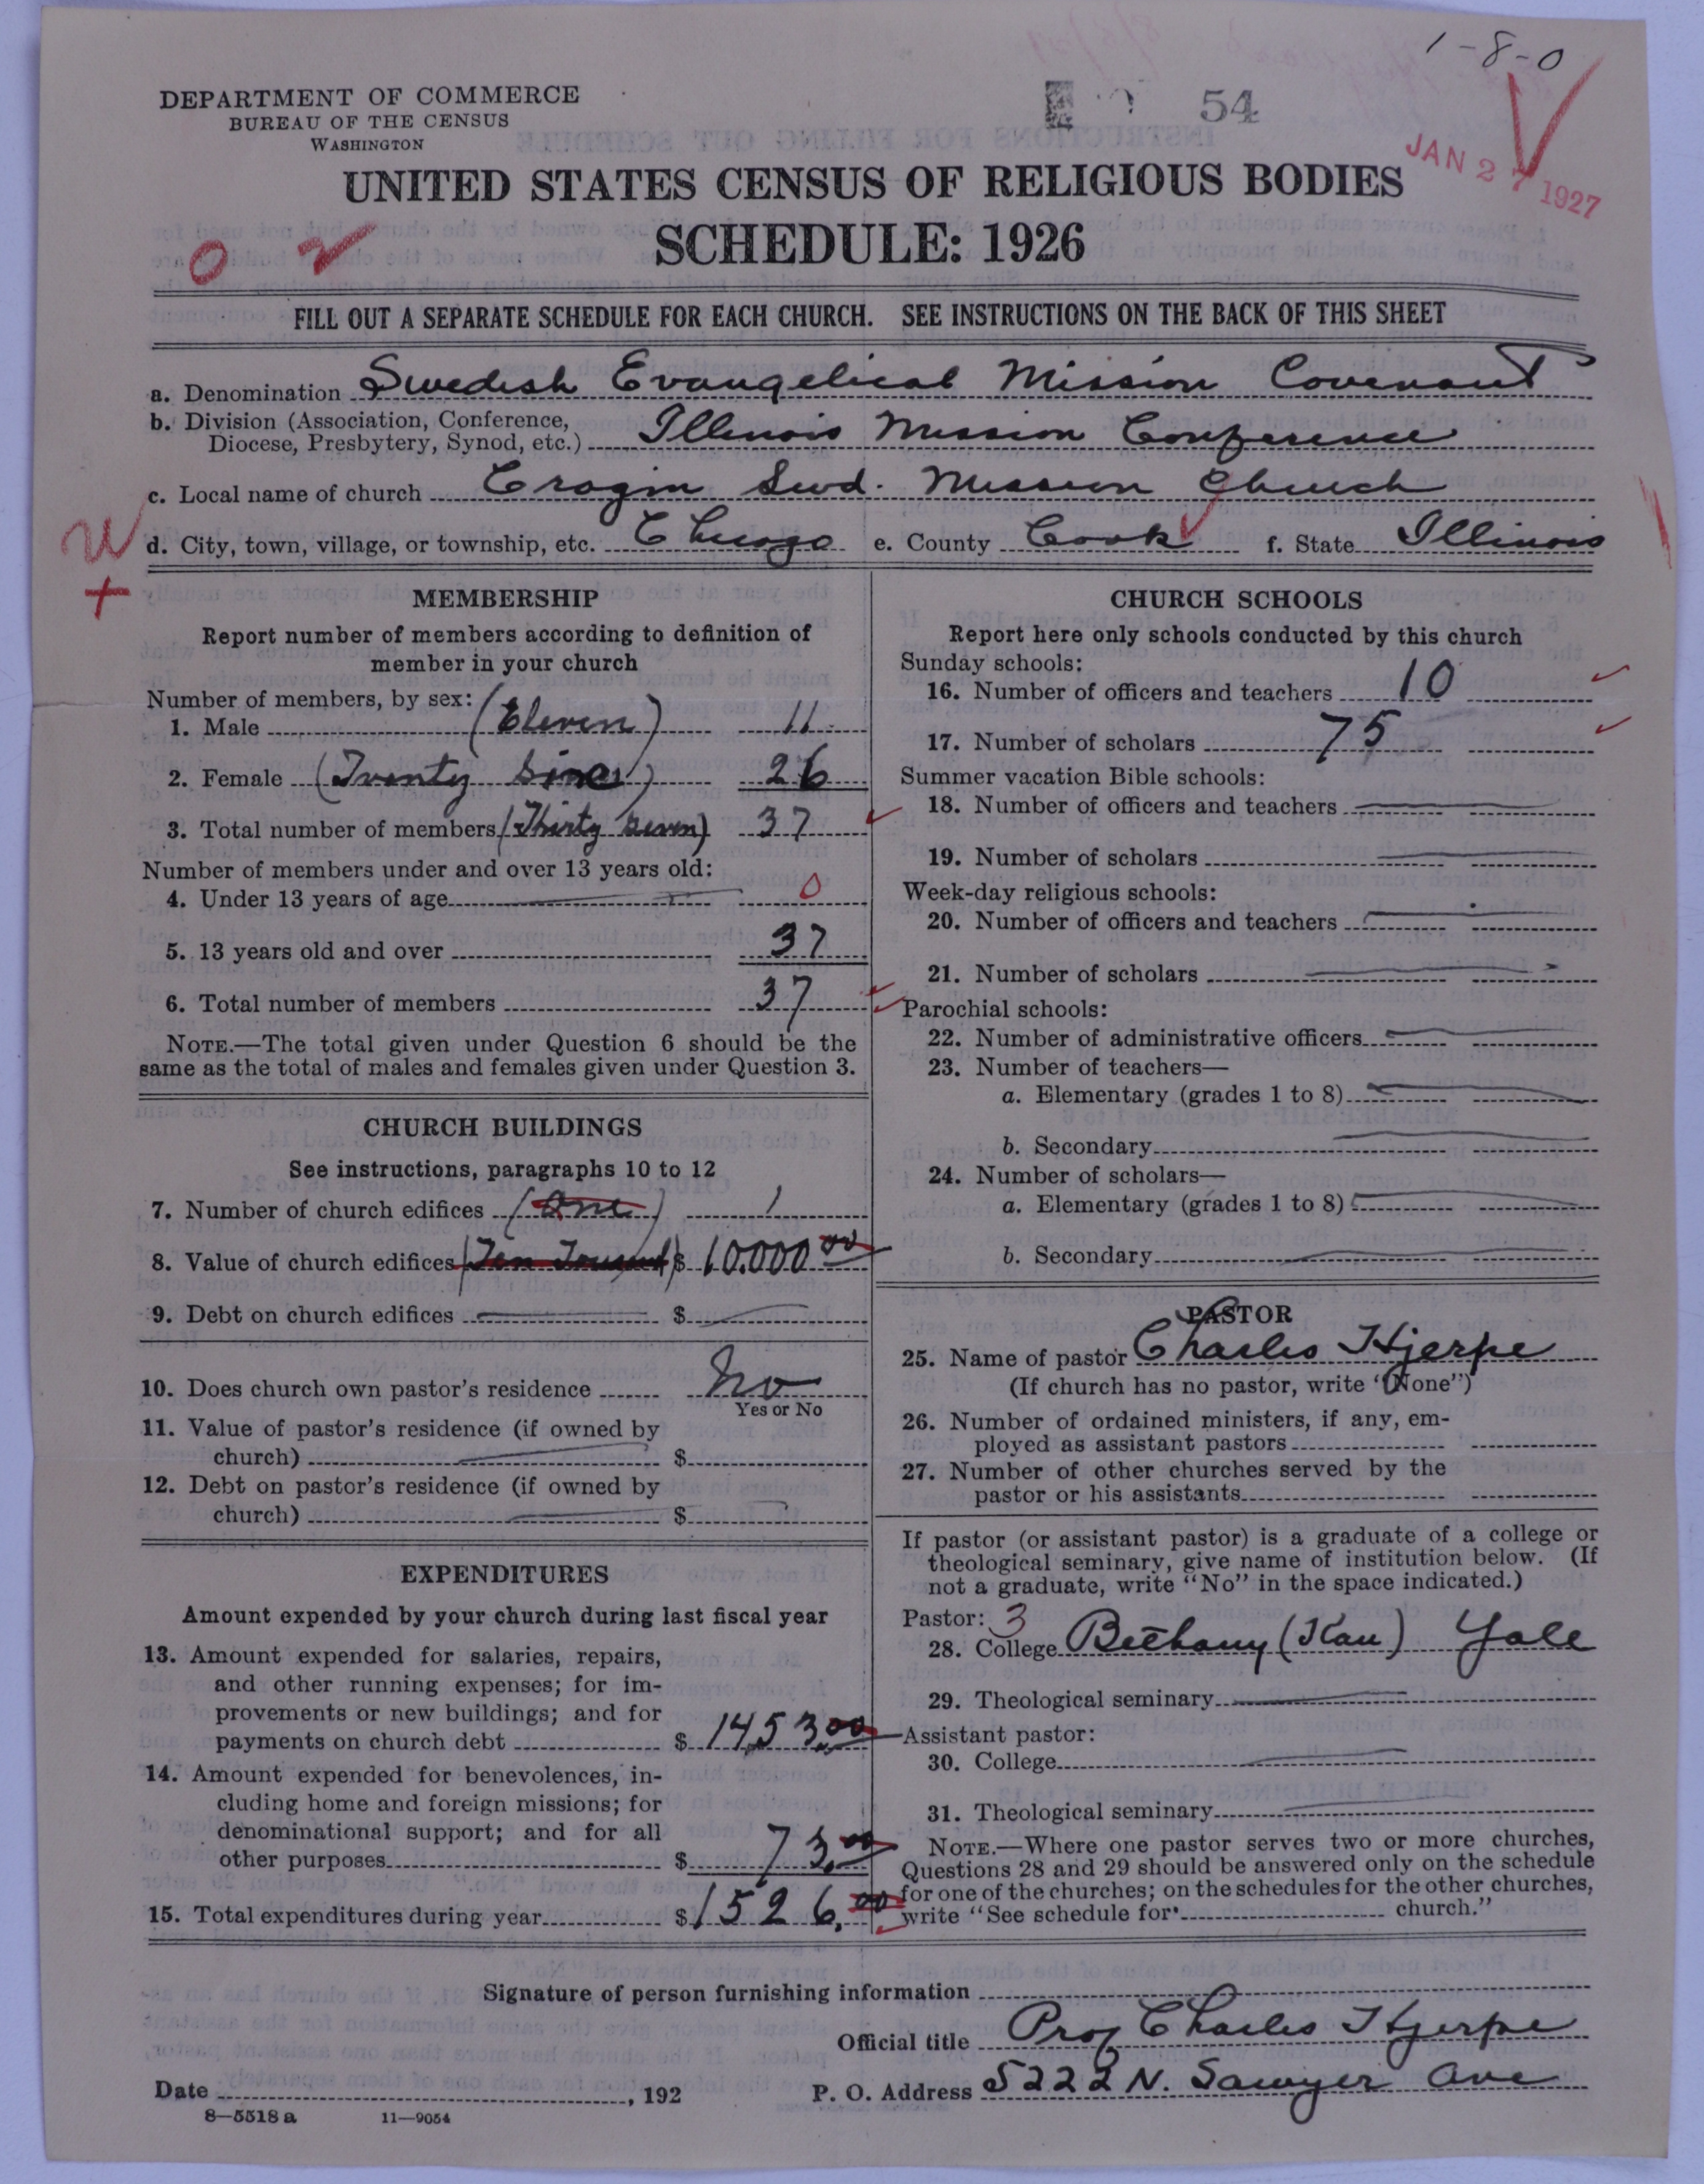 1-8-0
DEPARTMENT OF COMMERCE
BUREAU OF THE CENSUS
WASHINGTON
54
JAN 27 1927
UNITED STATES CENSUS OF RELIGIOUS BODIES
SCHEDULE: 1926
FILL OUT A SEPARATE SCHEDULE FOR EACH CHURCH. SEE INSTRUCTIONS ON THE BACK OF THIS SHEET
a. Denomination Swedish Evangelical Mission Covenant
b. Division (Association, Conference,
Diocese, Presbytery, Synod, etc.) Illinois Mission Conference
c. Local name of church Cragin Swd. Mission Church
d. City, town, village, or township, etc. Chicago e. County Cook f. State Illinois
MEMBERSHIP
Report number of members according to definition of
member in your church
Number of members, by sex:
1. Male (Eleven) 11
2. Female (Twenty Sixe) 26
3. Total number of members (Thirty Seven) 37
Number of members under and over 13 years old:
4. Under 13 years of age 0
5. 13 years old and over 37
6. Total number of members 37
NOTE.—The total given under Question 6 should be the
same as the total of males and females given under Question 3.
CHURCH BUILDINGS
See instructions, paragraphs 10 to 12
7. Number of church edifices (One) 1
8. Value of church edifices (Ten Tousand) $ 10.000 00
9. Debt on church edifices $
10. Does church own pastor's residence No
Yes or No
11. Value of pastor's residence (if owned by
church) $
12. Debt on pastor's residence (if owned by
church) $
EXPENDITURES
Amount expended by your church during last fiscal year
13. Amount expended for salaries, repairs,
and other running expenses; for im-
provements or new buildings; and for
payments on church debt $ 1453.00
14. Amount expended for benevolences, in-
cluding home and foreign missions; for
denominational support; and for all
other purposes $ 73.00
15. Total expenditures during year $ 1526.00
CHURCH SCHOOLS
Report here only schools conducted by this church
Sunday schools:
16. Number of officers and teachers 10
17. Number of scholars 75
Summer vacation Bible schools:
18. Number of officers and teachers
19. Number of scholars
Week-day religious schools:
20. Number of officers and teachers
21. Number of scholars
Parochial schools:
22. Number of administrative officers
23. Number of teachers—
a. Elementary (grades 1 to 8)
b. Secondary
24. Number of scholars—
a. Elementary (grades 1 to 8)
b. Secondary
PASTOR
25. Name of pastor Charles Hjerpe
(If church has no pastor, write "None")
26. Number of ordained ministers, if any, em-
ployed as assistant pastors
27. Number of other churches served by the
pastor or his assistants
If pastor (or assistant pastor) is a graduate of a college or
theological seminary, give name of institution below. (If
not a graduate, write "No" in the space indicated.)
Pastor: 3
28. College Bethany (Kan) Yale
29. Theological seminary
Assistant pastor:
30. College
31. Theological seminary
NOTE.—Where one pastor serves two or more churches,
Questions 28 and 29 should be answered only on the schedule
for one of the churches; on the schedules for the other churches,
write "See schedule for church."
Signature of person furnishing information
Official title Prof Charles Hjerpe
Date , 192 P. O. Address 5222 N. Sawyer Ave
8—5518 a 11—9054